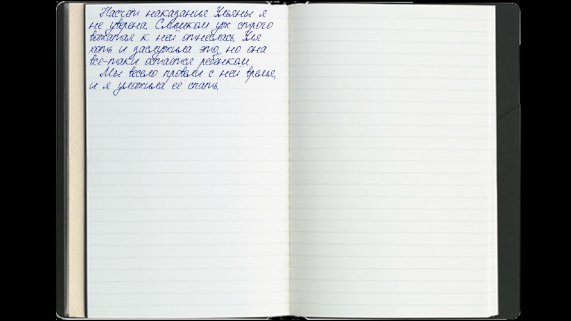 Насчёт наказания Ульяны я
не уверена. Слишком уж строго
вожатая к ней отнеслась. Уля
хоть и заслужила это, но она
всё-таки остаётся ребёнком.
Мы весело провели с ней время,
и я уложила её спать.